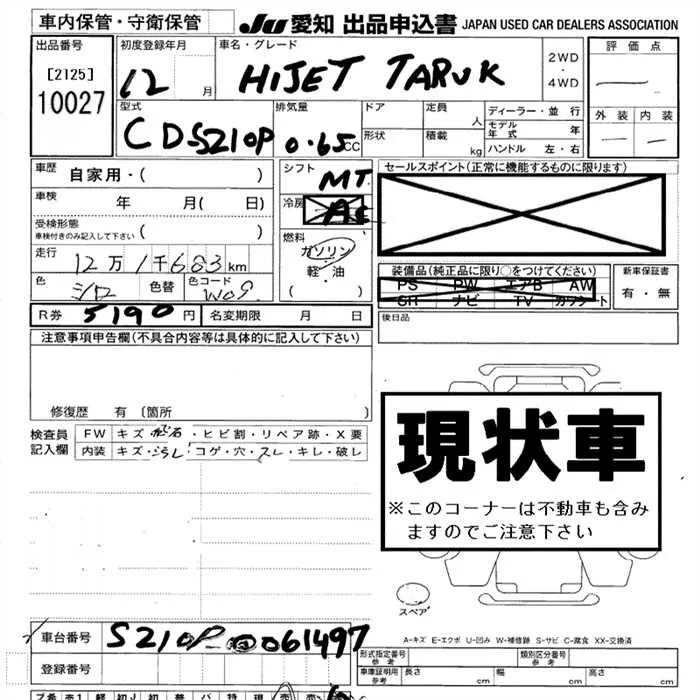 車内保管・守衛保管
JU 愛知 出品申込書 JAPAN USED CAR DEALERS ASSOCIATION
出品番号
[2125]
10027
初度登録年月
12 月
車名・グレード
HIJET TARUK
2WD
・
4WD
評価点
外装 内装
型式
CD-S210P
排気量
0.65 CC
ドア
形状
定員 人
積載 kg
ディーラー・並行
モデル年式 年
ハンドル 左・右
車歴 自家用・( )
車検 年 月( 日)
受検形態
車検付きのみ記入して下さい ( )
走行 12万1千683km
色 シロ 色替 色コード W09
シフト MT
冷房 AC
燃料
ガソリン
軽・油
( )
セールスポイント(正常に機能するものに限ります)
装備品(純正品に限り○をつけてください)
PS PW エアB AW
SR ナビ TV カワシート
新車保証書
有・無
R券 5190円 名変期限 月 日
後日品
注意事項申告欄(不具合内容等は具体的に記入して下さい)
修復歴 有 〔箇所 〕
検査員記入欄
FW キズ・飛石・ヒビ割・リペア跡・X要
内装 キズ・よごれ・コゲ・穴・スレ・キレ・破レ
現状車
※このコーナーは不動車も含み
ますのでご注意下さい
スペア
A-キズ E-エクボ U-凹み W-補修跡 S-サビ C-腐食 XX-交換済
車台番号 S210P-0061497
登録番号
形式指定番号 参考 類別区分番号 参考
車庫証明用 参考 長さ cm 幅 cm 高さ cm